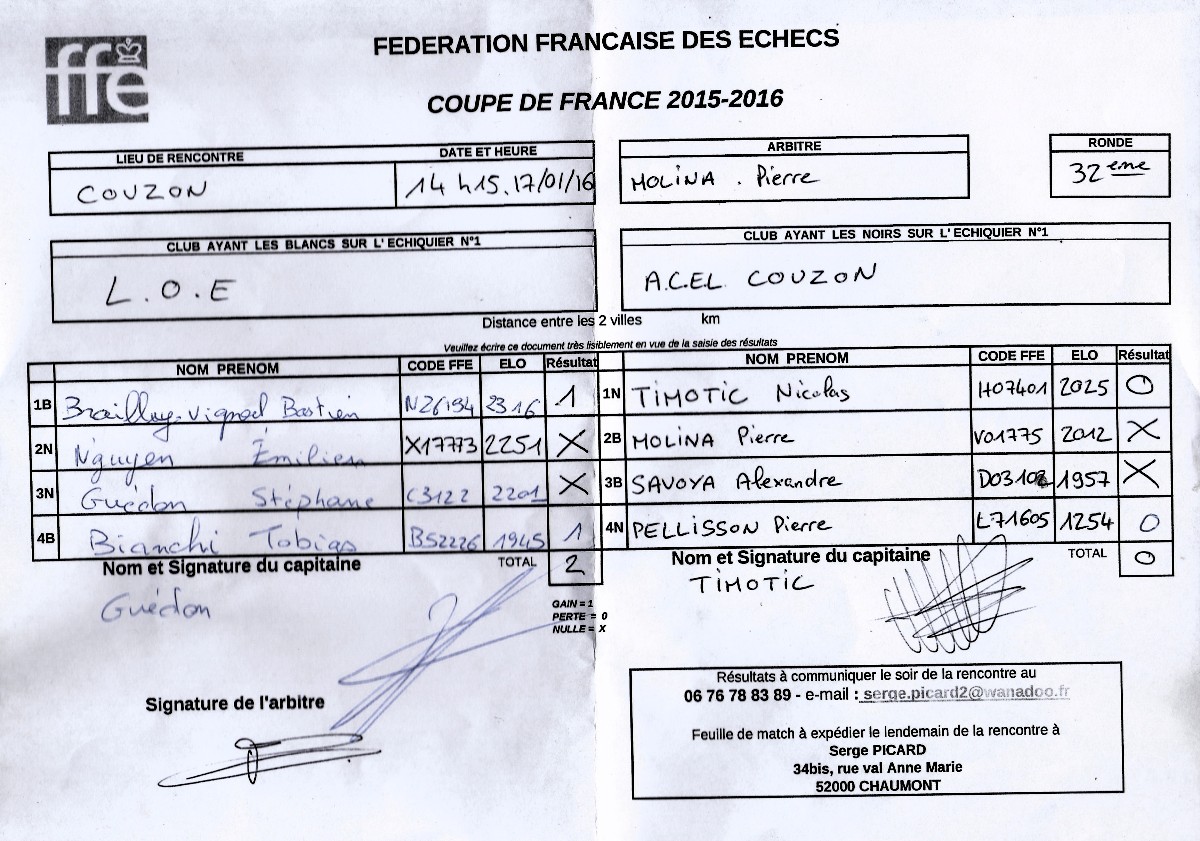 ffe
FEDERATION FRANCAISE DES ECHECS
COUPE DE FRANCE 2015-2016
LIEU DE RENCONTRE DATE ET HEURE
COUZON 14 h15. 17/01/16
ARBITRE
MOLINA . Pierre
RONDE
32 eme
CLUB AYANT LES BLANCS SUR L' ECHIQUIER N°1
L.O.E
CLUB AYANT LES NOIRS SUR L' ECHIQUIER N°1
A.C.E.L COUZON
Distance entre les 2 villes km
Veuillez écrire ce document très lisiblement en vue de la saisie des résultats
NOM PRENOM CODE FFE ELO Résultat NOM PRENOM CODE FFE ELO Résultat
1B Bastien N26194 2316 1 1N TIMOTIC Nicolas H07401 2025 0
2N Nguyen Émilien X17773 2251 X 2B MOLINA Pierre V01775 2012 X
3N Guédon Stéphane C3122 2201 X 3B SAVOYA Alexandre 1957 X
4B Bianchi Tobias B52226 1945 1 4N PELLISSON Pierre L71605 1254 0
Nom et Signature du capitaine TOTAL 2 Nom et Signature du capitaine TOTAL 0
Guédon TIMOTIC
GAIN = 1
PERTE = 0
NULLE = X
Signature de l'arbitre
Résultats à communiquer le soir de la rencontre au
06 76 78 83 89 - e-mail : serge.picard2@wanadoo.fr
Feuille de match à expédier le lendemain de la rencontre à
Serge PICARD
34bis, rue val Anne Marie
52000 CHAUMONT